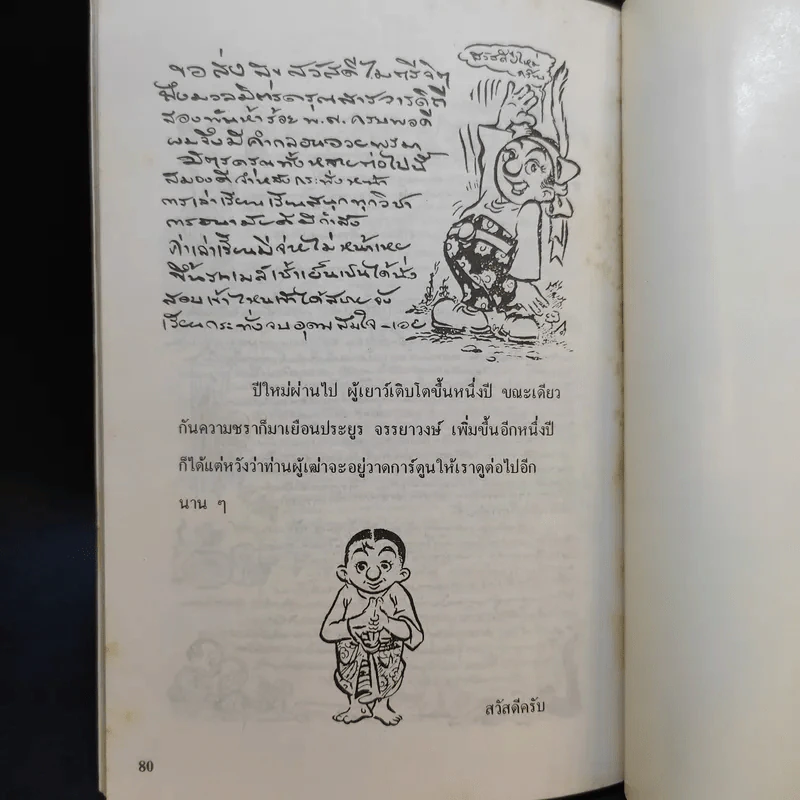 สวัสดีปีใหม่
ครับ
ขอส่งสุขสวัสดีไมตรีจิต
ถึงมวลมิตรดรุณสารวารดิถี
สองพันห้าร้อย พ.ศ. ครบพอดี
ผมจึงมีคำกลอนอวยพรมา
มิตรดรุณทั้งหลายต่อไปนี้
สมองดีจำหลังกระทั่งหน้า
การเล่าเรียนเรียนสนุกทุกวิชา
การอนามัยดีมีกำลัง
ค่าเล่าเรียนมีจ่ายไม่หน้าแหย
ขึ้นรถเมล์เช้าเย็นเป็นได้นั่ง
สอบเข้าไหนเข้าได้สบายจัง
เรียนกระทั่งจบอุดมสมใจ-เอย
ปีใหม่ผ่านไป ผู้เยาว์เติบโตขึ้นหนึ่งปี ขณะเดียว
กันความชราก็มาเยือนประยูร จรรยาวงษ์ เพิ่มขึ้นอีกหนึ่งปี
ก็ได้แต่หวังว่าท่านผู้เฒ่าจะอยู่วาดการ์ตูนให้เราดูต่อไปอีก
นาน ๆ
สวัสดีครับ
80